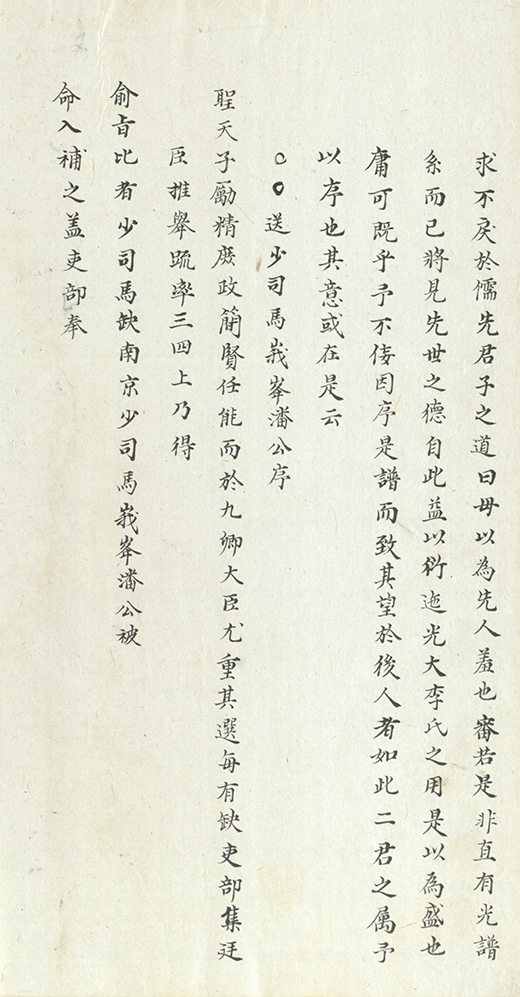 求不戾於儒先君子之道曰毋以為先人羞也審若是非直有光譜
系而已將見先世之德自此益以衍迤光大李氏之用是以為盛也
庸可既乎予不佞因序是譜而致其望於後人者如此二君之属予
以序也其意或在是云
○○送少司馬峩峯潘公序
聖天子勵精庶政簡賢任能而於九卿大臣尤重其選每有缺吏部集廷
臣推舉疏率三四上乃得
俞旨比者少司馬缺南京少司馬峩峯潘公被
命入補之盖吏部奉